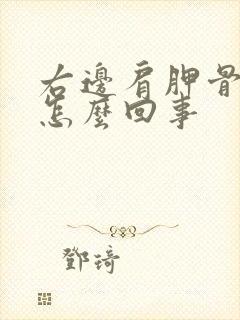 右邊肩胛骨
怎麼回事
鄧琦